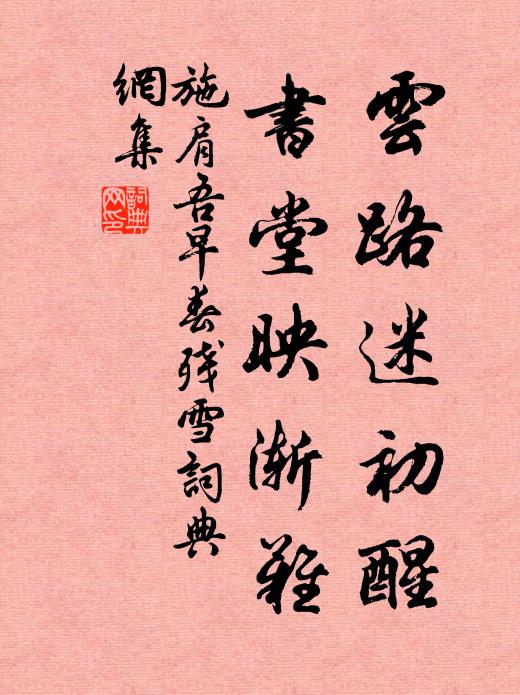 雲路迷初醒
書堂映漸難
施肩吾早春殘雪詞典
網集
詞典
网印